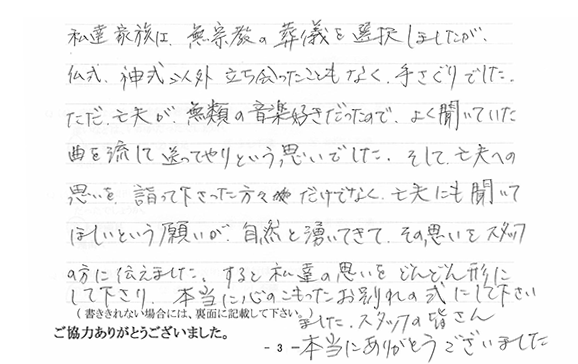 私達家族は、無宗教の葬儀を選択しましたが、
仏式、神式以外立ち会ったこともなく、手さぐりでした。
ただ、亡夫が、無類の音楽好きだったので、よく聞いていた
曲を流して送ってやりという思いでした。そして、亡夫への
思いを、詣って下さった方々だけでなく、亡夫にも聞いて
ほしいという願いが、自然と湧いてきて、その思いをスタッフ
の方に伝えました。すると私達の思いをどんどん形に
して下さり、本当に心のこもったお別れの式にして下さい
(書ききれない場合には、裏面に記載して下さい。)
ました。スタッフの皆さん
ご協力ありがとうございました。
- 3 -
本当にありがとうございました